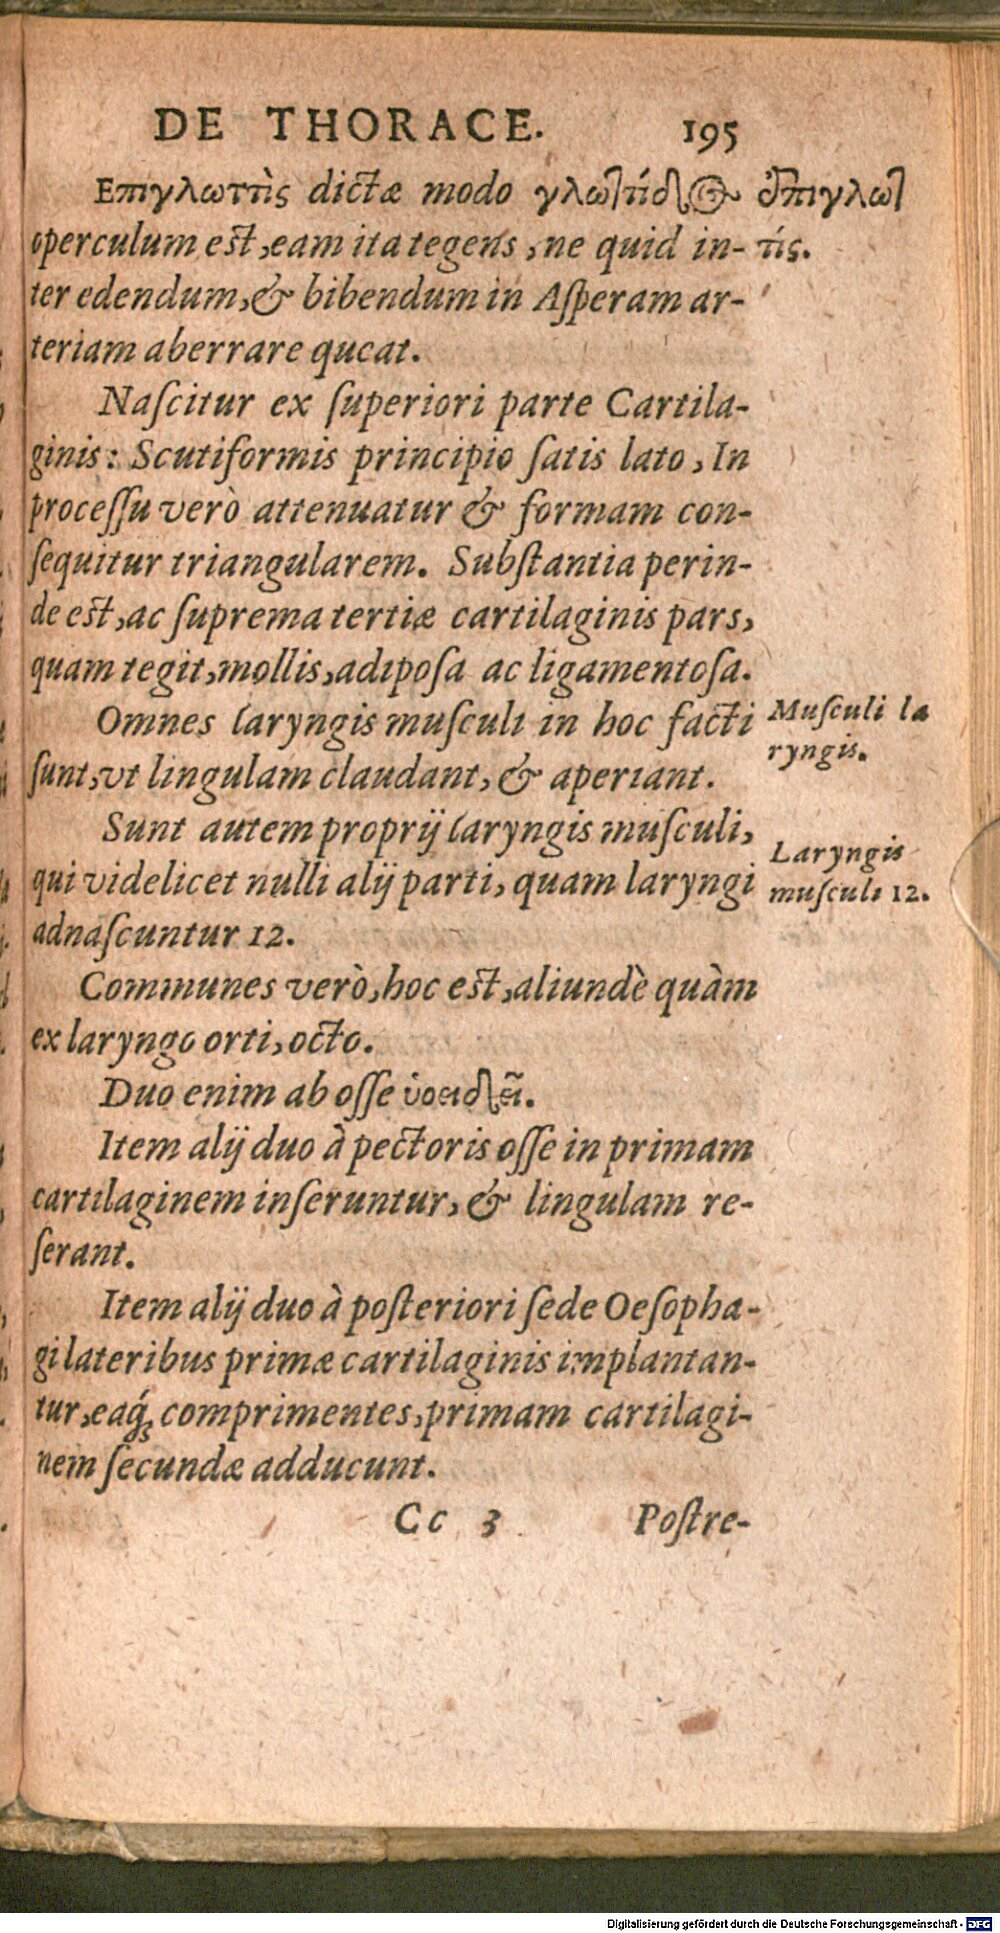 DE THORACE. 195
Επιγλωττὶς dictæ modo γλωττίδος
operculum est, eam ita tegens, ne quid in-
ter edendum, & bibendum in Aſperam ar-
teriam aberrare queat.
Naſcitur ex ſuperiori parte Cartila-
ginis: Scutiformis principio ſatis lato, In
proceſſu verò attenuatur & formam con-
ſequitur triangularem. Subſtantia perin-
de est, ac ſuprema tertiæ cartilaginis pars,
quam tegit, mollis, adipoſa ac ligamentoſa.
Omnes laryngis muſculi in hoc facti
ſunt, vt lingulam claudant, & aperiant.
Sunt autem proprij laryngis muſculi,
qui videlicet nulli alij parti, quam laryngi
adnaſcuntur 12.
Communes verò, hoc est, aliundè quàm
ex laryngo orti, octo.
Duo enim ab oſſe ὑοειδεῖ.
Item alij duo à pectoris oſſe in primam
cartilaginem inſeruntur, & lingulam re-
ſerant.
Item alij duo à poſteriori ſede Oeſopha-
gi lateribus primæ cartilaginis implantan-
tur, eaq́; comprimentes, primam cartilagi-
nem ſecundæ adducunt.
Cc 3 Poſtre-
ἐπιγλωτ
τίς.
Muſculi la
ryngis.
Laryngis
muſculi 12.
Digitalisierung gefördert durch die Deutsche Forschungsgemeinschaft - DFG